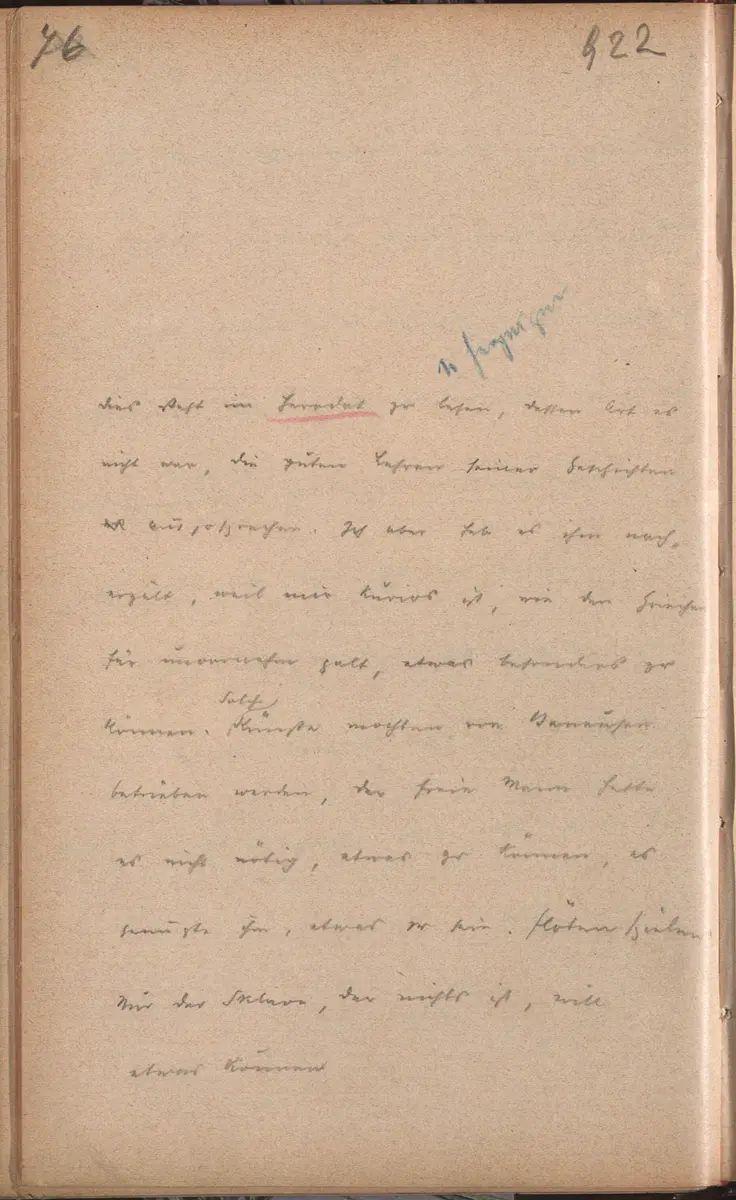 76 922
dies steht im Herodot zu lesen, dessen Art es
nicht war, die guten Lehren seiner Geschichten
auszusprechen. Ich aber hab es ihm nach-
erzält, weil mir kurios ist, wie den Griechen
für unvornehm galt, etwas besonders zu
Solche
können. Künste mochten von Banausen
betrieben werden, der freie Mann hatte
es nicht nötig, etwas zu können, es
genügte ihm, etwas zu sein. Flöten spielen
Nur der Sklave, der nichts ist, will
etwas können